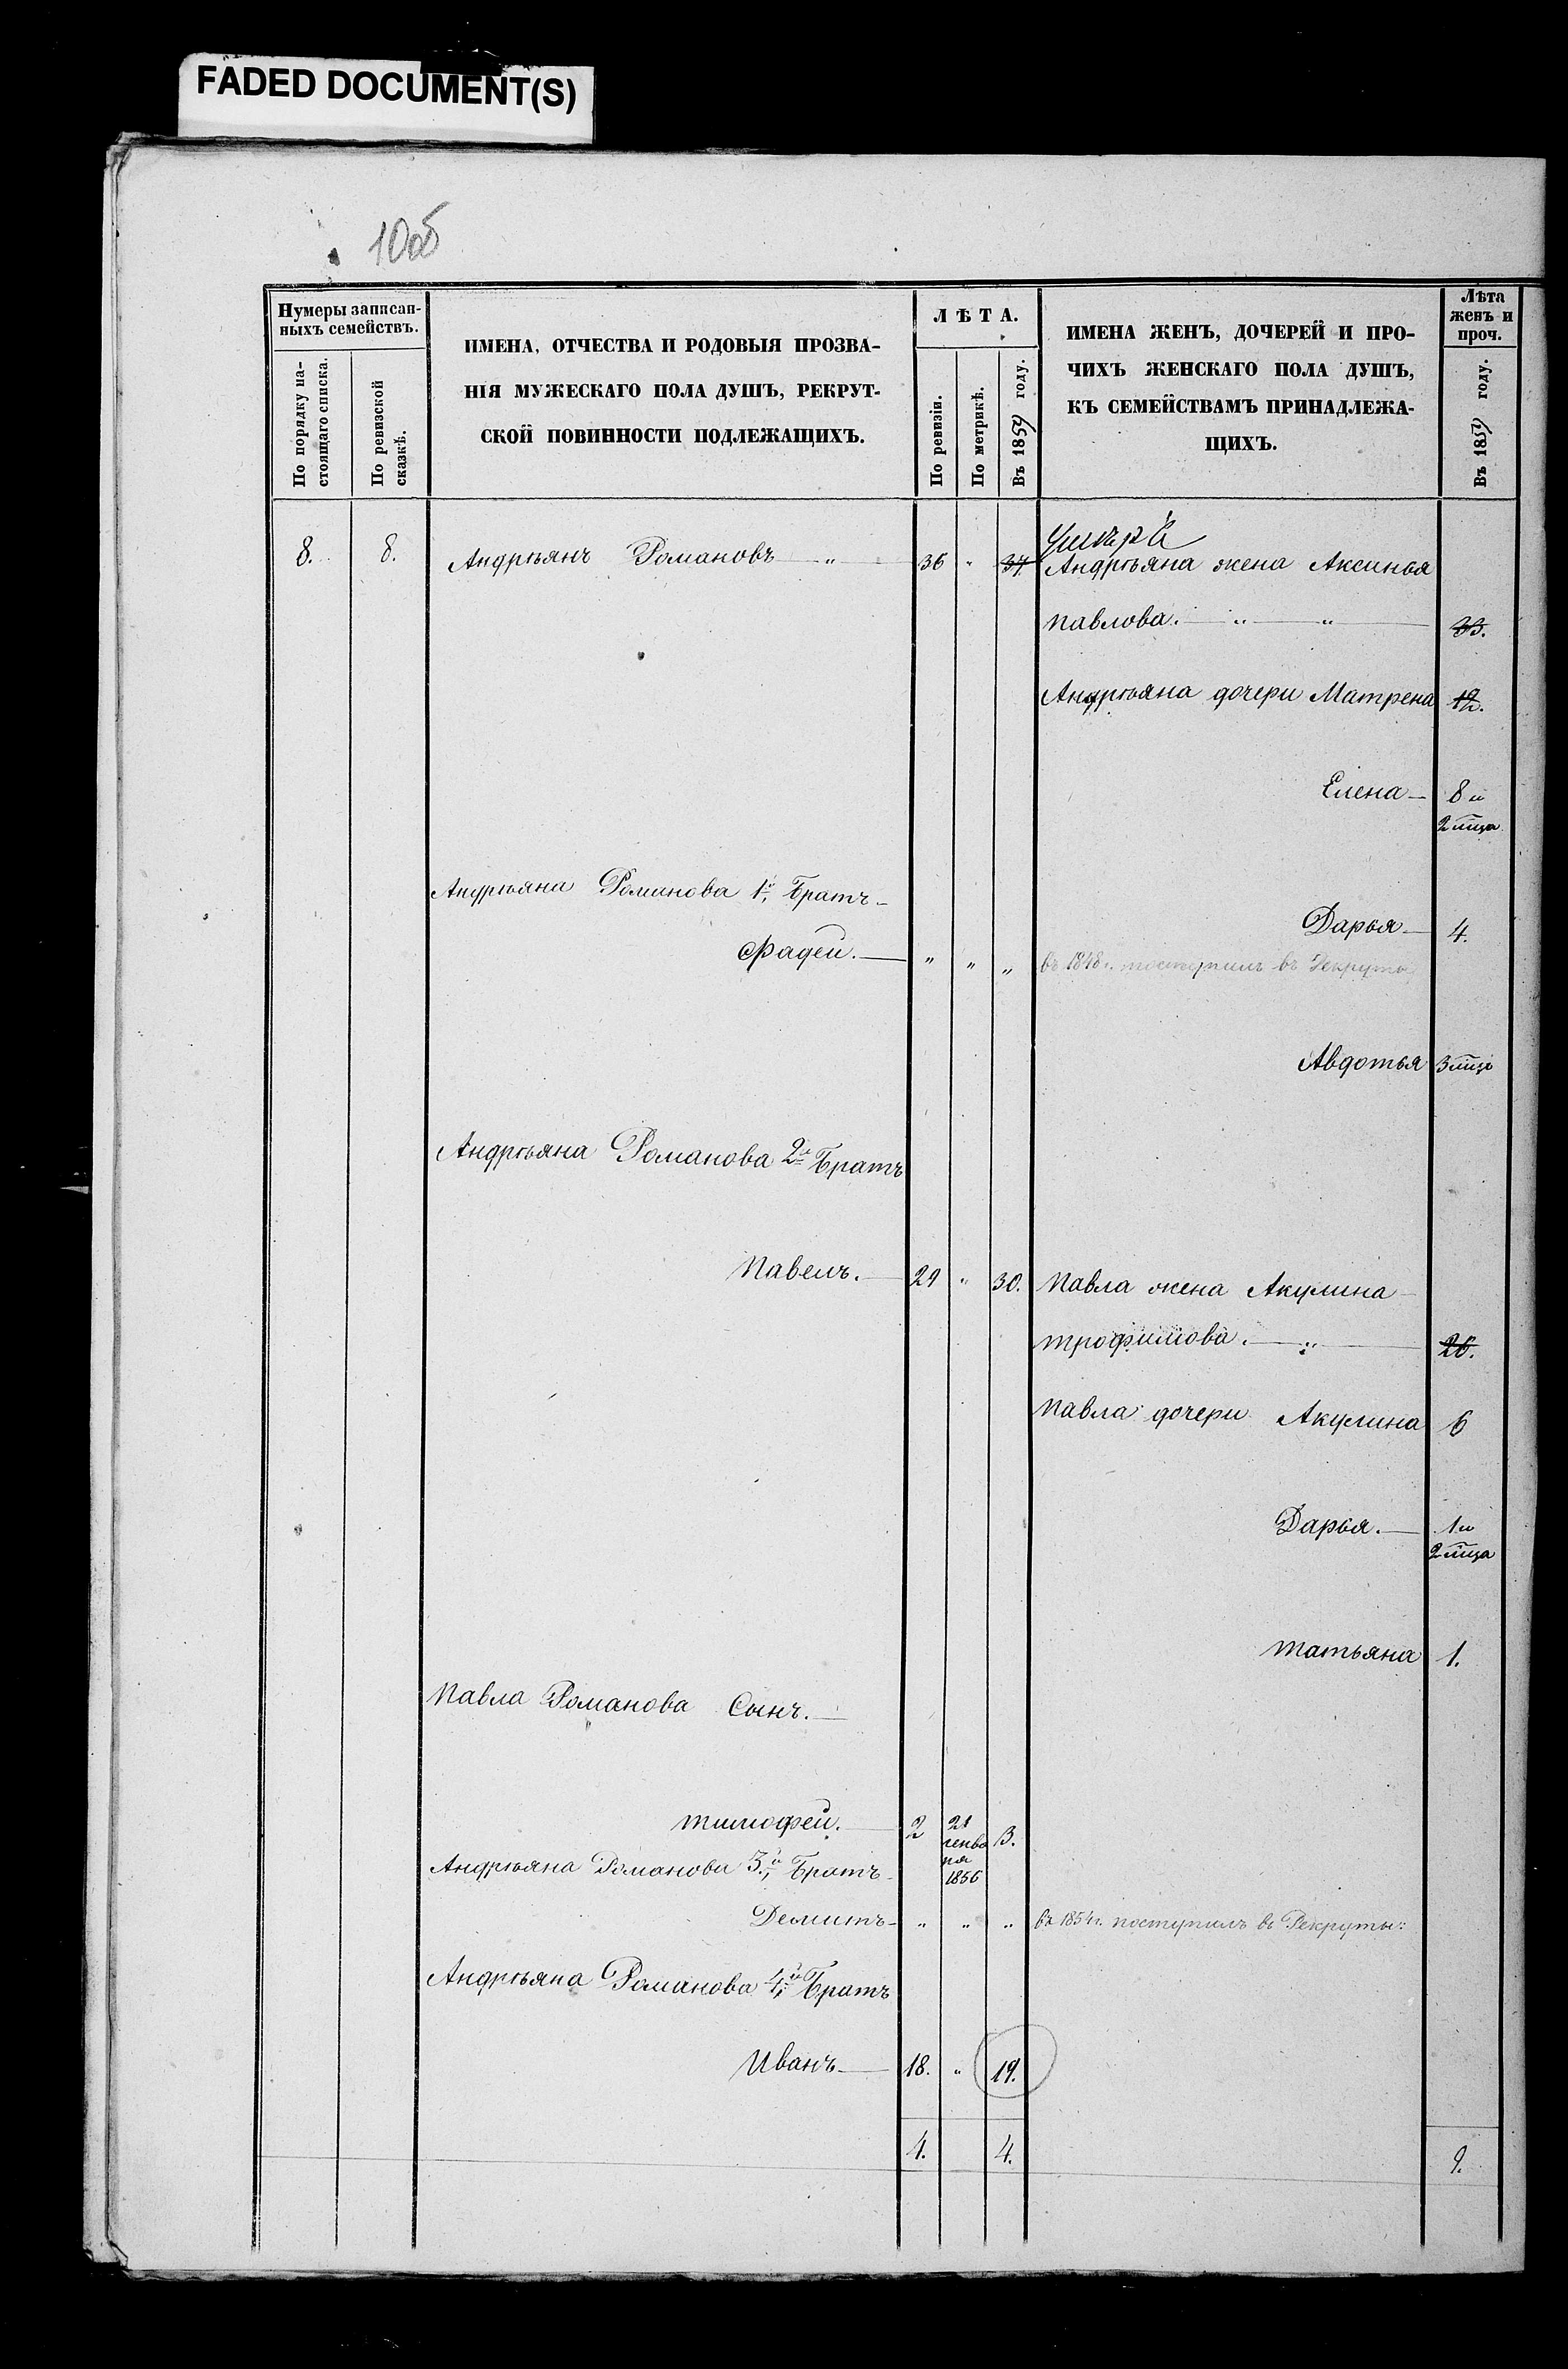 FADED DOCUMENT(S)
10об
Нумеры записан-
ныхъ семействъ.
По порядку на-
стоящаго списка.
По ревизской
сказкѣ.
ИМЕНА, ОТЧЕСТВА И РОДОВЫЯ ПРОЗВА-
НІЯ МУЖЕСКАГО ПОЛА ДУШЪ, РЕКРУТ-
СКОЙ ПОВИННОСТИ ПОДЛЕЖАЩИХЪ.
ЛѢТА.
По ревизіи.
По метрикѣ.
Въ 1859 году.
ИМЕНА ЖЕНЪ, ДОЧЕРЕЙ И ПРО-
ЧИХЪ ЖЕНСКАГО ПОЛА ДУШЪ,
КЪ СЕМЕЙСТВАМЪ ПРИНАДЛЕЖА-
ЩИХЪ.
Лѣта
женъ и
проч.
Въ 1859 году.
8. 8. Андрѣянъ Романовъ — „ — 36 „ 37. Андрѣяна жена Аксинья
Павлова. — „ — „ — 33.
Андрѣяна дочери Матрена 12.
Елена — 8 и
2 мѣца
Андрѣяна Романова 1й Братъ —
Дарья — 4.
Фадей. — „ „ „ въ 1848 г. поступилъ въ Рекруты
Авдотья 3 мѣцъ
Андрѣяна Романова 2й Братъ
Павелъ. — 29 „ 30. Павла жена Акулина —
Трофимова. — „ — 26.
Павла дочери Акулина 6
Дарья. — 1 и
2 мѣца
Татьяна 1.
Павла Романова Сынъ. —
Тимофей. — 2 21 генва
ря
1856 3.
Андрѣяна Романова 3й Братъ —
Демитъ — „ „ „ въ 1854 г. поступилъ въ Рекруты:
Андрѣяна Романова 4й Братъ
Иванъ — 18. „ 19.
4. 4. 9.